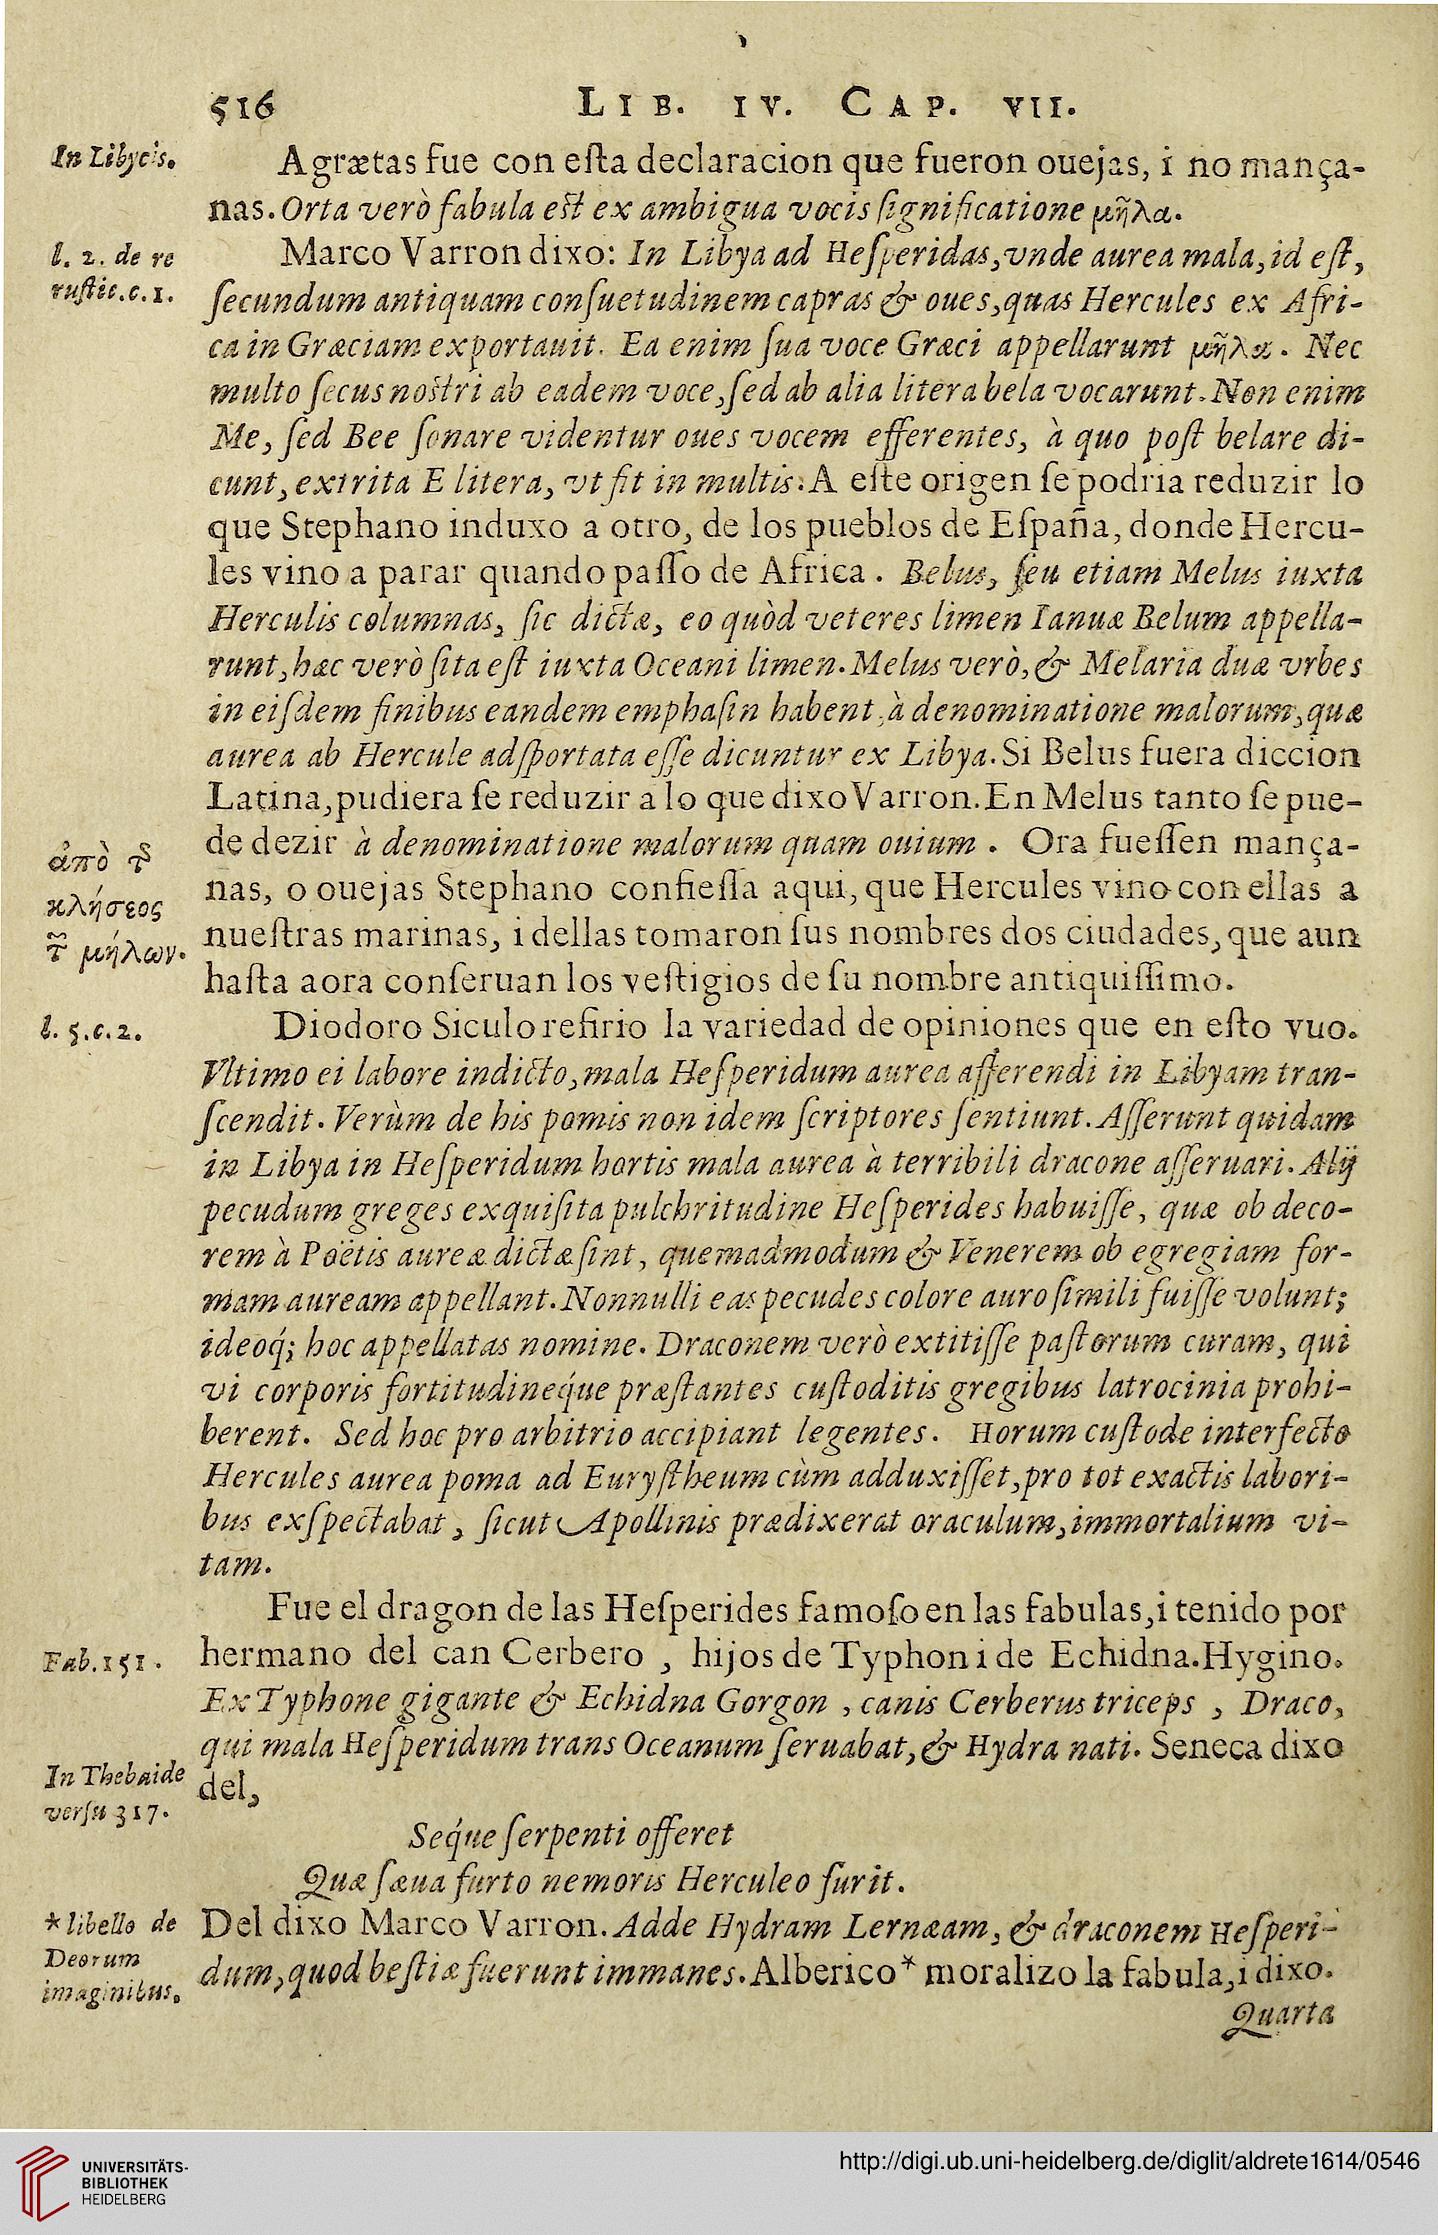 516 LIB. IV. CAP. VII.
In Libycis.
Agrætas fue con eſta declaracion que fueron ouejas, i no mança-
nas. Orta verò fabula eſt ex ambigua vocis ſignificatione μῆλα.
l. 2. de re
ruſtic.c.1.
Marco Varron dixo: In Libya ad Heſperidas, vnde aurea mala, id eſt,
ſecundum antiquam conſuetudinem capras & oues, quas Hercules ex Afri-
ca in Græciam exportauit. Ea enim ſua voce Græci appellarunt μῆλα. Nec
multo ſecus noſtri ab eadem voce, ſed ab alia litera bela vocarunt. Non enim
Me, ſed Bee ſonare videntur oues vocem efferentes, à quo poſt belare di-
cunt, extrita E litera, vt fit in multis. A eſte origen ſe podria reduzir lo
que Stephano induxo a otro, de los pueblos de Eſpaña, donde Hercu-
les vino a parar quando paſſo de Africa. Belus, ſeu etiam Melus iuxta
Herculis columnas, ſic dictæ, eo quòd veteres limen Ianuæ Belum appella-
runt, hæc verò ſita eſt iuxta Oceani limen. Melus verò, & Melaria duæ vrbes
in eiſdem finibus eandem emphaſin habent, à denominatione malorum, quæ
aurea ab Hercule adſportata eſſe dicuntur ex Libya. Si Belus fuera diccion
Latina, pudiera ſe reduzir a lo que dixo Varron. En Melus tanto ſe pue-
de dezir à denominatione malorum quam ouium. Ora fueſſen mança-
nas, o ouejas Stephano confieſſa aqui, que Hercules vino con ellas a
nueſtras marinas, i dellas tomaron ſus nombres dos ciudades, que aun
haſta aora conſeruan los veſtigios de ſu nombre antiquiſſimo.
ἀπὸ τ͂
κλήσεος
τ͂ μήλων.
l. 5.c.2.
Diodoro Siculo refirio la variedad de opiniones que en eſto vuo.
Vltimo ei labore indicto, mala Heſperidum aurea afferendi in Libyam tran-
ſcendit. Verùm de his pomis non idem ſcriptores ſentiunt. Aſſerunt quidam
in Libya in Heſperidum hortis mala aurea à terribili dracone aſſeruari. Alij
pecudum greges exquiſita pulchritudine Heſperides habuiſſe, quæ ob deco-
rem à Poëtis aureæ dictæ ſint, quemadmodum & Venerem ob egregiam for-
mam auream appellant. Nonnulli eas pecudes colore auro ſimili fuiſſe volunt;
ideoq́; hoc appellatas nomine. Draconem verò extitiſſe paſtorum curam, qui
vi corporis fortitudineq́ue præſtantes cuſtoditis gregibus latrocinia prohi-
berent. Sed hoc pro arbitrio accipiant legentes. Horum cuſtode interfecto
Hercules aurea poma ad Euryſtheum cùm adduxiſſet, pro tot exactis labori-
bus exſpectabat, ſicut Apollinis prædixerat oraculum, immortalium vi-
tam.
Fue el dragon de las Heſperides famoſo en las fabulas, i tenido por
Fab.151.
hermano del can Cerbero, hijos de Typhon i de Echidna. Hygino.
Ex Typhone gigante & Echidna Gorgon, canis Cerberus triceps, Draco,
qui mala Heſperidum trans Oceanum ſeruabat, & Hydra nati. Seneca dixo
In Thebaide
verſu 317.
del,
Seq́ue ſerpenti offeret
Quæ ſæua furto nemoris Herculeo furit.
Del dixo Marco Varron. Adde Hydram Lernæam, & draconem Heſperi-
dum, quod beſtiæ fuerunt immanes. Alberico* moralizo la fabula, i dixo.
*libello de
Deorum
imaginibus.
Quarta
UNIVERSITÄTS-
BIBLIOTHEK
HEIDELBERG
http://digi.ub.uni-heidelberg.de/diglit/aldrete1614/0546